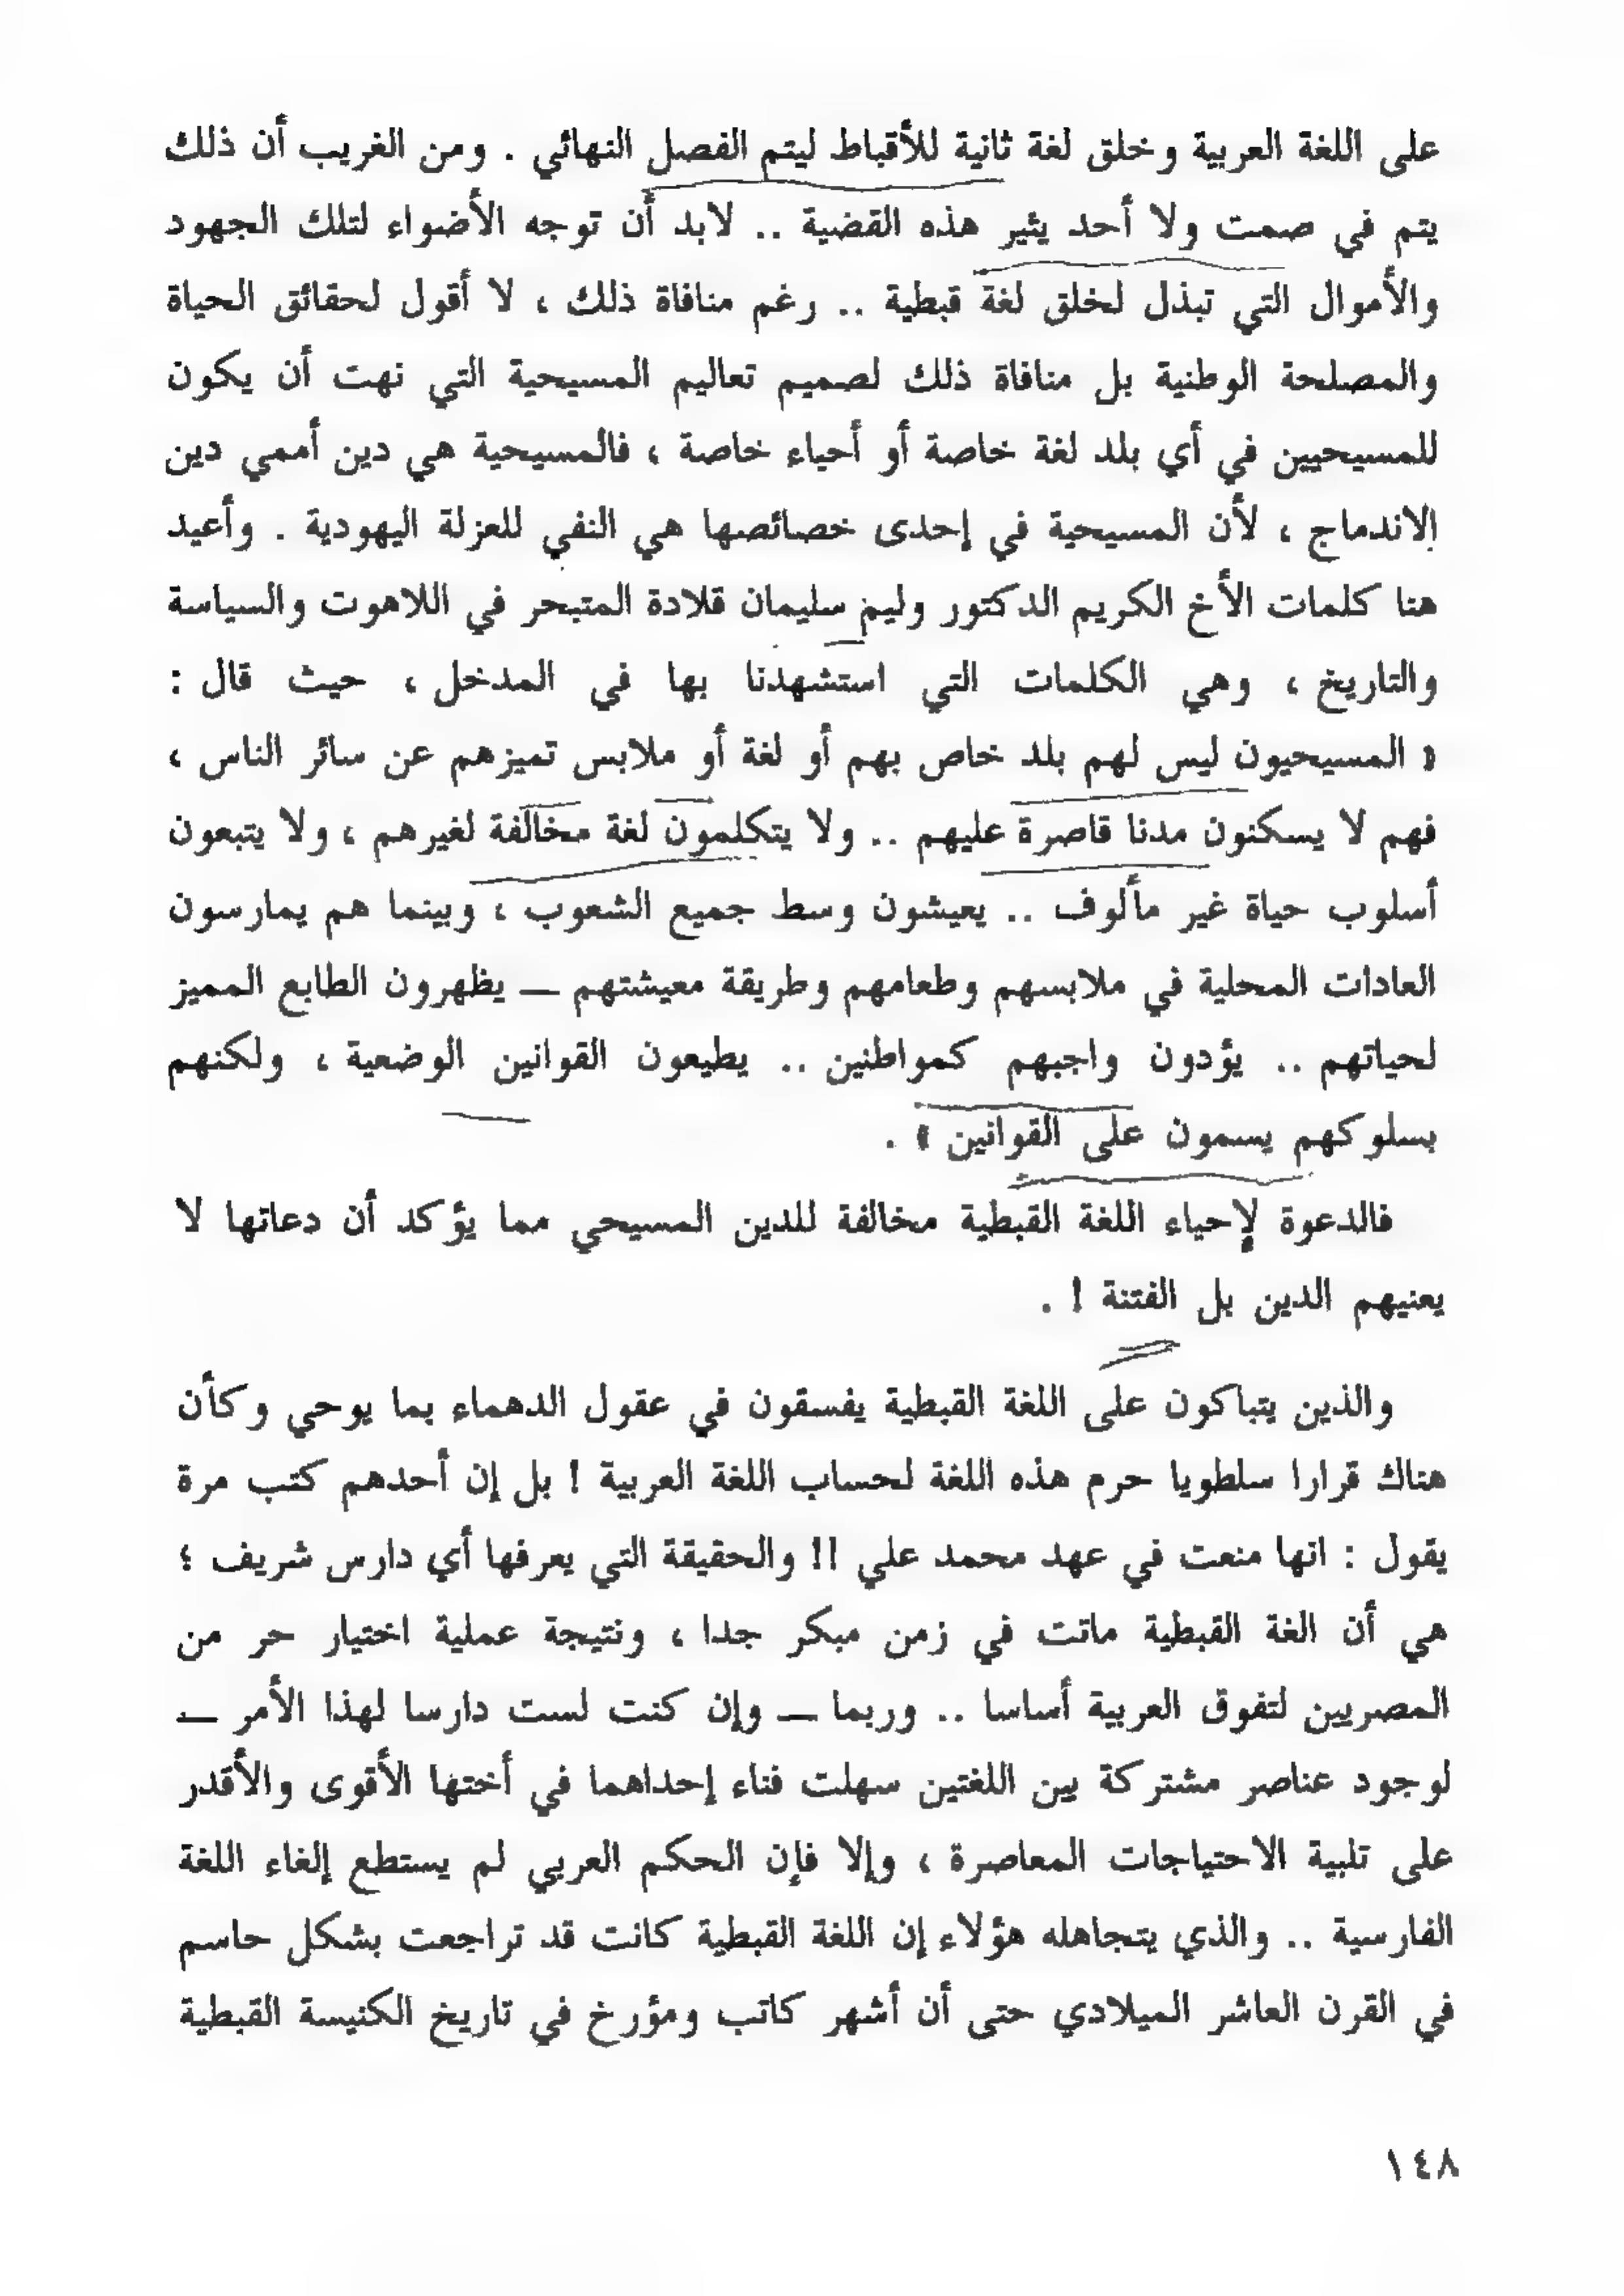 على اللغة العربية وخلق لغة ثانية للأقباط ليتم الفصل النهائي . ومن الغريب أن ذلك
يتم في صمت ولا أحد يثير هذه القضية .. لابد أن توجه الأضواء لتلك الجهود
والأموال التي تبذل لخلق لغة قبطية .. رغم منافاة ذلك ، لا أقول لحقائق الحياة
والمصلحة الوطنية بل منافاة ذلك لصميم تعاليم المسيحية التي نهت أن يكون
للمسيحيين في أي بلد لغة خاصة أو أحياء خاصة ، فالمسيحية هي دين أممي دين
الاندماج ، لأن المسيحية في إحدى خصائصها هي النفي للعزلة اليهودية . وأعيد
هنا كلمات الأخ الكريم الدكتور وليم سليمان قلادة المتبحر في اللاهوت والسياسة
والتاريخ ، وهي الكلمات التي استشهدنا بها في المدخل ، حيث قال :
« المسيحيون ليس لهم بلد خاص بهم أو لغة أو ملابس تميزهم عن سائر الناس ،
فهم لا يسكنون مدنا قاصرة عليهم .. ولا يتكلمون لغة مخالفة لغيرهم ، ولا يتبعون
أسلوب حياة غير مألوف .. يعيشون وسط جميع الشعوب ، وبينما هم يمارسون
العادات المحلية في ملابسهم وطعامهم وطريقة معيشتهم — يظهرون الطابع المميز
لحياتهم .. يؤدون واجبهم كمواطنين .. يطيعون القوانين الوضعية ، ولكنهم
بسلوكهم يسمون على القوانين » .
فالدعوة لإحياء اللغة القبطية مخالفة للدين المسيحي مما يؤكد أن دعاتها لا
يعنيهم الدين بل الفتنة ! .
والذين يتباكون على اللغة القبطية يفسقون في عقول الدهماء بما يوحي وكأن
هناك قرارا سلطويا حرم هذه اللغة لحساب اللغة العربية ! بل إن أحدهم كتب مرة
يقول : انها منعت في عهد محمد علي !! والحقيقة التي يعرفها أي دارس شريف ؛
هي أن الغة القبطية ماتت في زمن مبكر جدا ، ونتيجة عملية اختيار حر من
المصريين لتفوق العربية أساسا .. وربما — وإن كنت لست دارسا لهذا الأمر —
لوجود عناصر مشتركة بين اللغتين سهلت فناء إحداهما في أختها الأقوى والأقدر
على تلبية الاحتياجات المعاصرة ، وإلا فإن الحكم العربي لم يستطع إلغاء اللغة
الفارسية .. والذي يتجاهله هؤلاء إن اللغة القبطية كانت قد تراجعت بشكل حاسم
في القرن العاشر الميلادي حتى أن أشهر كاتب ومؤرخ في تاريخ الكنيسة القبطية
١٤٨